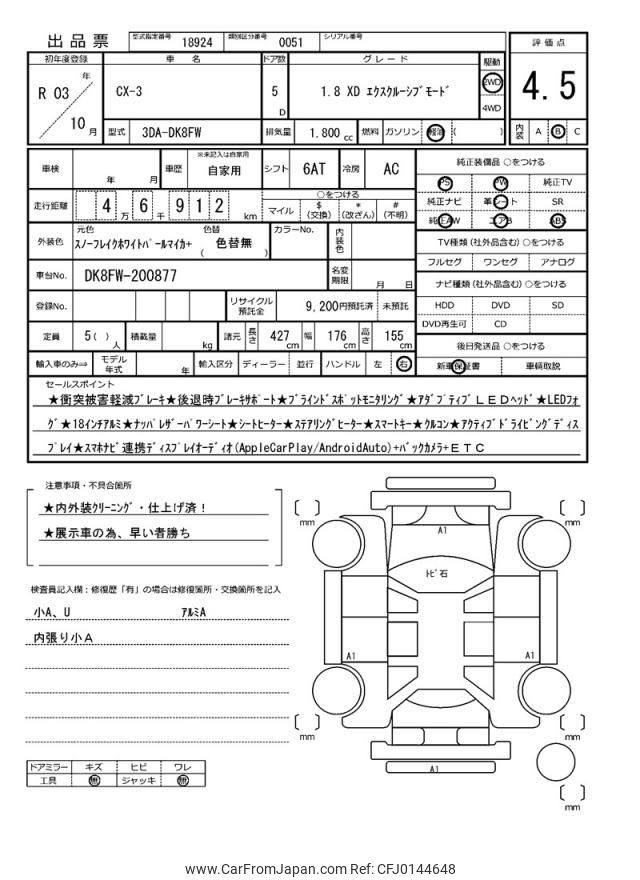 出品票 型式指定番号 18924 類別区分番号 0051 シリアル番号
初年度登録 車名 ドア数 グレード 駆動 評価点
R 03 年 10 月 CX-3 5 D 1.8 XD エクスクルーシブモード 2WD 4WD 4.5
型式 3DA-DK8FW 排気量 1.800 cc 燃料 ガソリン 軽油 ( ) 内装 A B C
車検 年 月 車歴 ※未記入は自家用 自家用 シフト 6AT 冷房 AC 純正装備品 ○をつける
PS PW 純正TV
走行距離 4 万 6 千 9 1 2 km ○をつける マイル $(交換) *(改ざん) #(不明) 純正ナビ 革シート SR
純正AW エアB ABS
外装色 元色 スノーフレイクホワイトパールマイカ+ 色替 ( 色替無 ) カラーNo. 内装色 TV種類 (社外品含む) ○をつける
フルセグ ワンセグ アナログ
車台No. DK8FW-200877 名変期限 月 日 ナビ種類 (社外品含む) ○をつける
登録No. リサイクル預託金 9,200円預託済 未預託 HDD DVD SD
DVD再生可 CD
定員 5 ( ) 人 積載量 kg 諸元 長さ 427 cm 幅 176 cm 高さ 155 cm 後日発送品 ○をつける
輸入車のみ⇒ モデル年式 年 輸入区分 ディーラー 並行 ハンドル 左 右 新車保証書 車輌取説
セールスポイント
★衝突被害軽減ブレーキ★後退時ブレーキサポート★ブラインドスポットモニタリング★アダプティブＬＥＤヘッド★LEDフォ
グ★18インチアルミ★ナッパレザーパワーシート★シートヒーター★ステアリングヒーター★スマートキー★クルコン★アクティブドライビングディス
プレイ★スマホナビ連携ディスプレイオーディオ(AppleCarPlay/AndroidAuto)+バックカメラ+ＥＴＣ
注意事項・不具合箇所
★内外装クリーニング・仕上げ済！
★展示車の為、早い者勝ち
検査員記入欄：修復歴「有」の場合は修復箇所・交換箇所を記入
小A、U アルミA
内張り小A
ドアミラー キズ ヒビ ワレ
工具 無 ジャッキ 無
mm
mm
A1
トビ石
A1
A1
mm
mm
A1
mm
www.CarFromJapan.com Ref: CFJ0144648